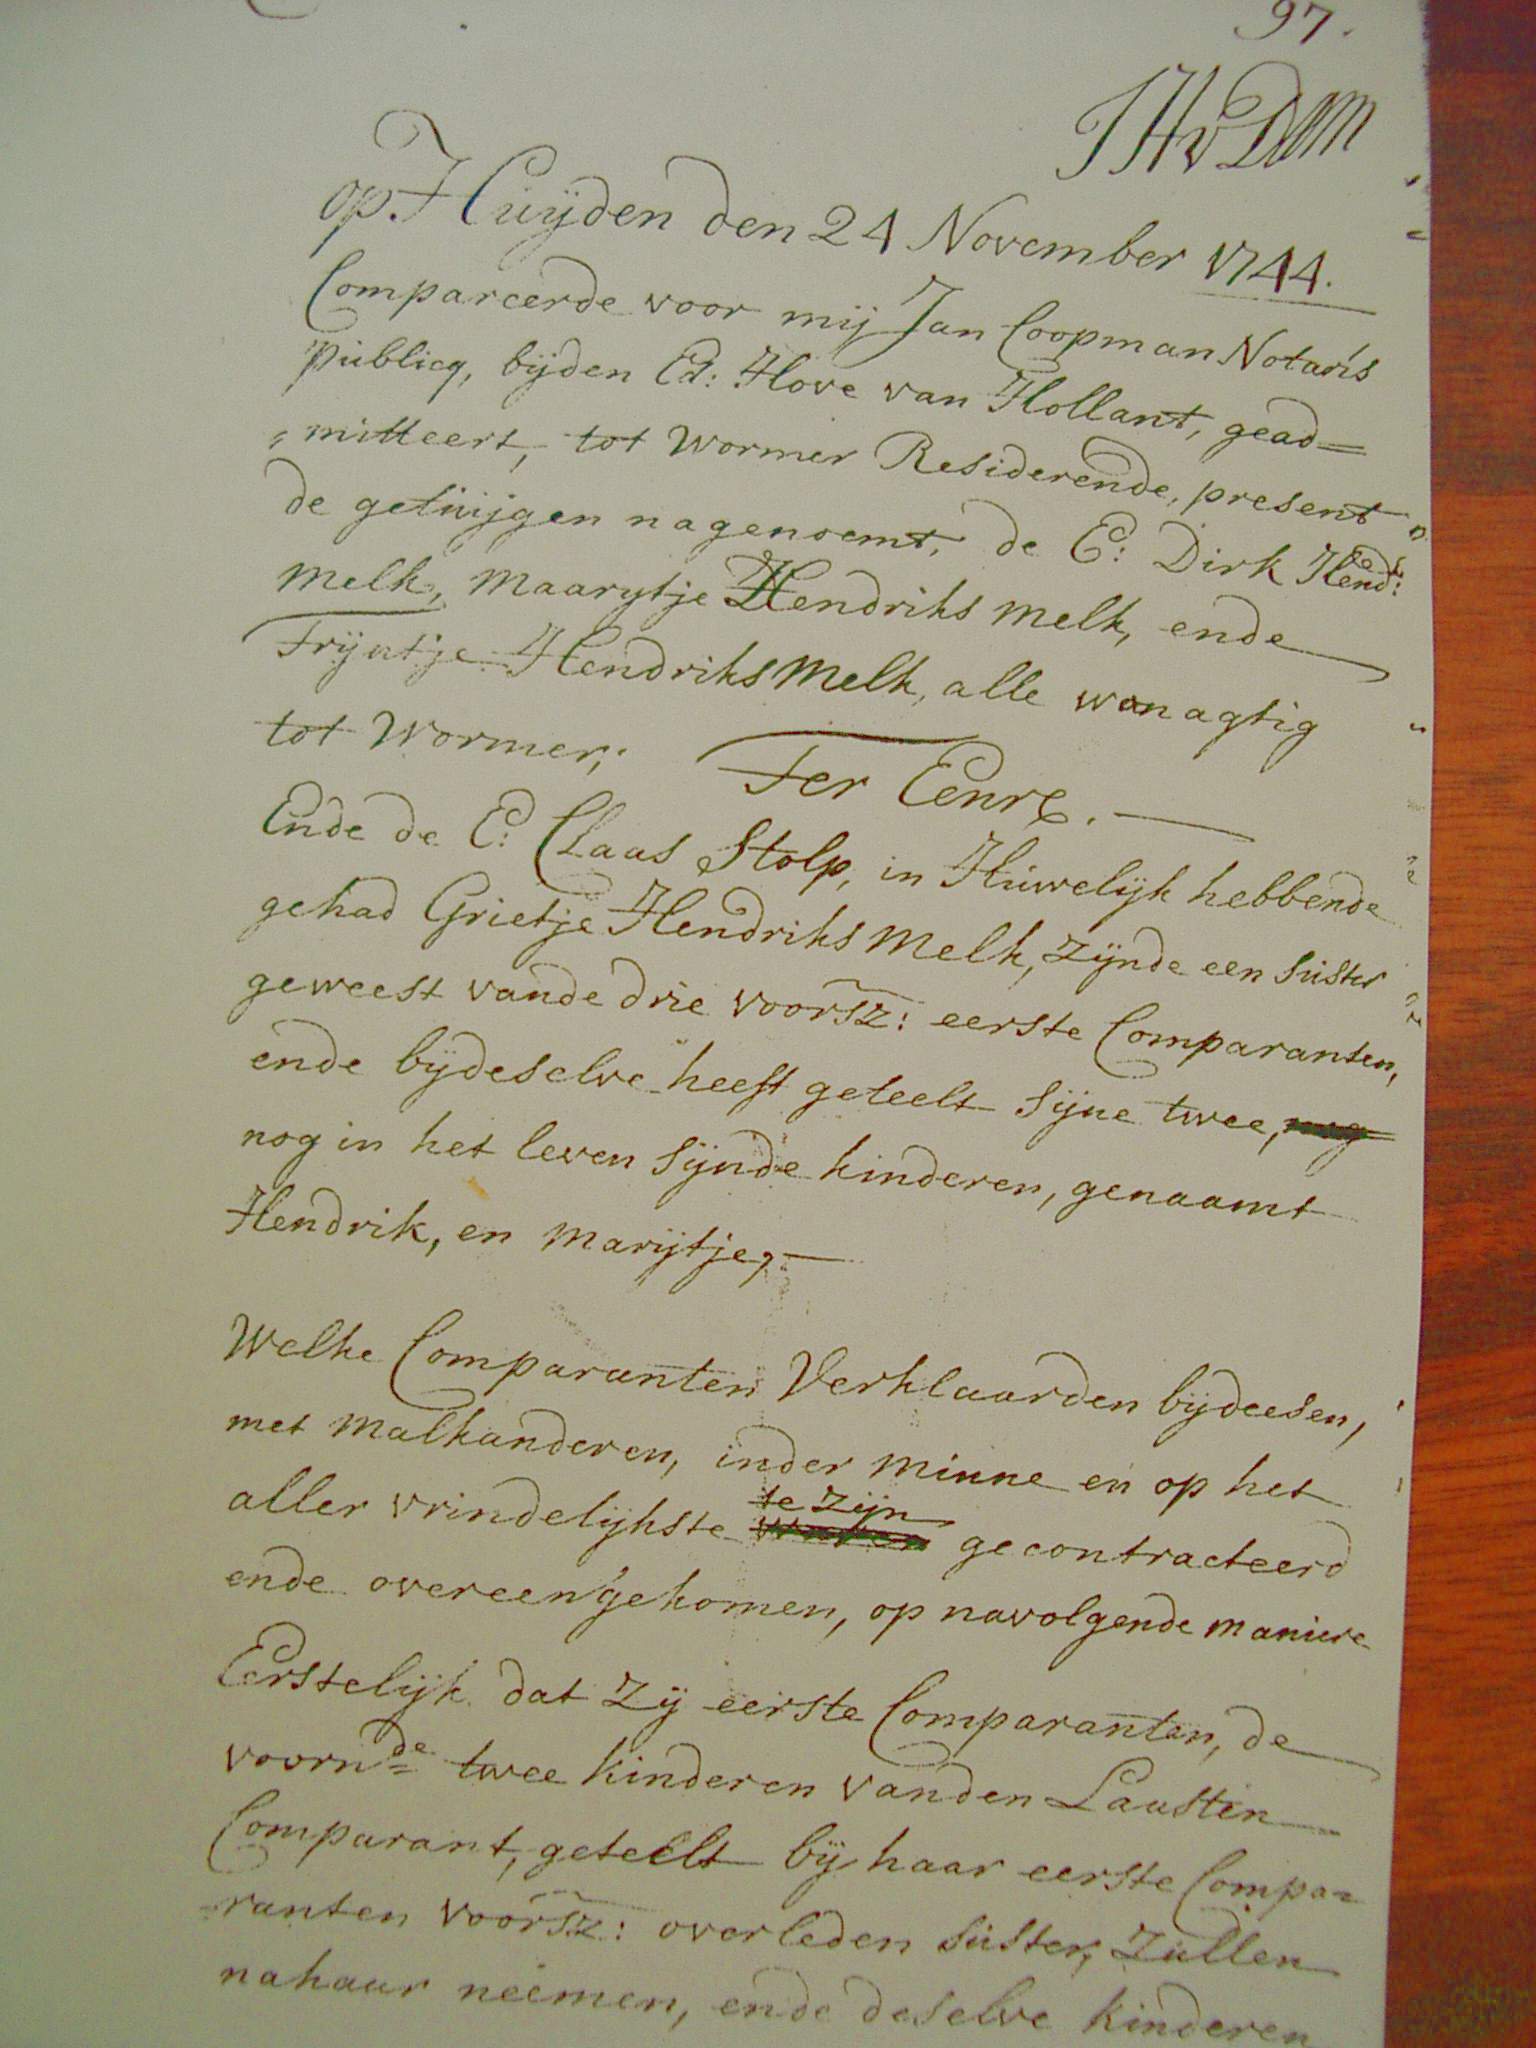 97.
JHvDam
op Huijden den 24 November 1744.
Compareerde voor mij Jan Coopman Notaris
Publicq, bijden Ed: Hove van Hollant, gead=
=mitteert, tot Wormer Residerende, present
de getuijgen nagenoemt, de E: Dirk Hend:
Melk, Maarytje Hendriks Melk, ende
Trijntje Hendriks Melk, alle wonagtig
tot Wormer; Ter Eenre.
Ende de E: Claas Stolp, in Huwelijk hebbende
gehad Grietje Hendriks Melk, zijnde een suster
geweest vande drie voorsz: eerste Comparanten,
ende bijdeselve heeft geteelt sijne twee, nog
nog in het leven sijnde kinderen, genaamt
Hendrik, en Marijtje,
Welke Comparanten Verklaarden bijdeesen,
met Malkanderen, inder Minne en op het
te zijn
aller vrindelijkste gecontracteerd
ende overeengekomen, op navolgende maniere
Eerstelijk dat zij eerste Comparanten, de
voornde twee kinderen vanden Laasten
Comparant, geteelt bij haar eerste Compa=
ranten voorsz: overleden suster, zullen
nahaar neemen, ende deselve kinderen